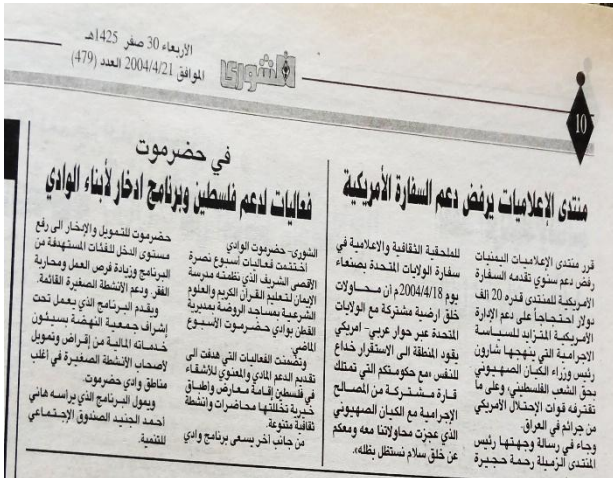 الأربعاء 30 صفر 1425هـ
الموافق 2004/4/21 العدد (479)
الشورى
10
منتدى الإعلاميات يرفض دعم السفارة الأمريكية
قرر منتدى الإعلاميات اليمنيات
رفض دعم سنوي تقدمه السفارة
الأمريكية للمنتدى قدره 20 الف
دولار احتجاجاً على دعم الإدارة
الأمريكية المتزايد للسياسة
الاجرامية التي ينهجها شارون
رئيس وزراء الكيان الصهيوني
بحق الشعب الفلسطيني، وعلى ما
تقترفه قوات الإحتلال الأمريكي
من جرائم في العراق.
وجاء في رسالة وجهتها رئيس
المنتدى الزميلة رحمة حجيرة
للملحقية الثقافية والاعلامية في
سفارة الولايات المتحدة بصنعاء
يوم 2004/4/18م أن محاولات
خلق ارضية مشتركة مع الولايات
المتحدة عبر حوار عربي- امريكي
يقود المنطقة الى الاستقرار خداع
للنفس «مع حكومتكم التي تمتلك
قارة مشتركة من المصالح
الإجرامية مع الكيان الصهيوني
الذي عجزت محاولاتنا معه ومعكم
عن خلق سلام نستظل بظله».
في حضرموت
فعاليات لدعم فلسطين وبرنامج ادخار لأبناء الوادي
الشورى- حضرموت الوادي
اختتمت فعاليات أسبوع نصرة
الاقصى الشريف الذي نظمته مدرسة
الإيمان لتعليم القرآن الكريم والعلوم
الشرعية بمساجد الروضة بمديرية
القطن بوادي حضرموت الأسبوع
الماضي.
وتضمنت الفعاليات التي هدفت الى
تقديم الدعم المادي والمعنوي للاشقاء
في فلسطين إقامة معارض وأطباق
خيرية تخللتها محاضرات وأنشطة
ثقافية متنوعة.
من جانب آخر يسعى برنامج وادي
حضرموت للتمويل والإدخار الى رفع
مستوى الدخل للفئات المستهدفة من
البرنامج وزيادة فرص العمل ومحاربة
الفقر ودعم الأنشطة الصغيرة القائمة.
ويقدم البرنامج الذي يعمل تحت
إشراف جمعية النهضة بسيئون
خدماته المالية من إقراض وتمويل
لأصحاب الأنشطة الصغيرة في أغلب
مناطق وادي حضرموت.
ويمول البرنامج الذي يراسه هاني
احمد الجنيد الصندوق الإجتماعي
للتنمية.